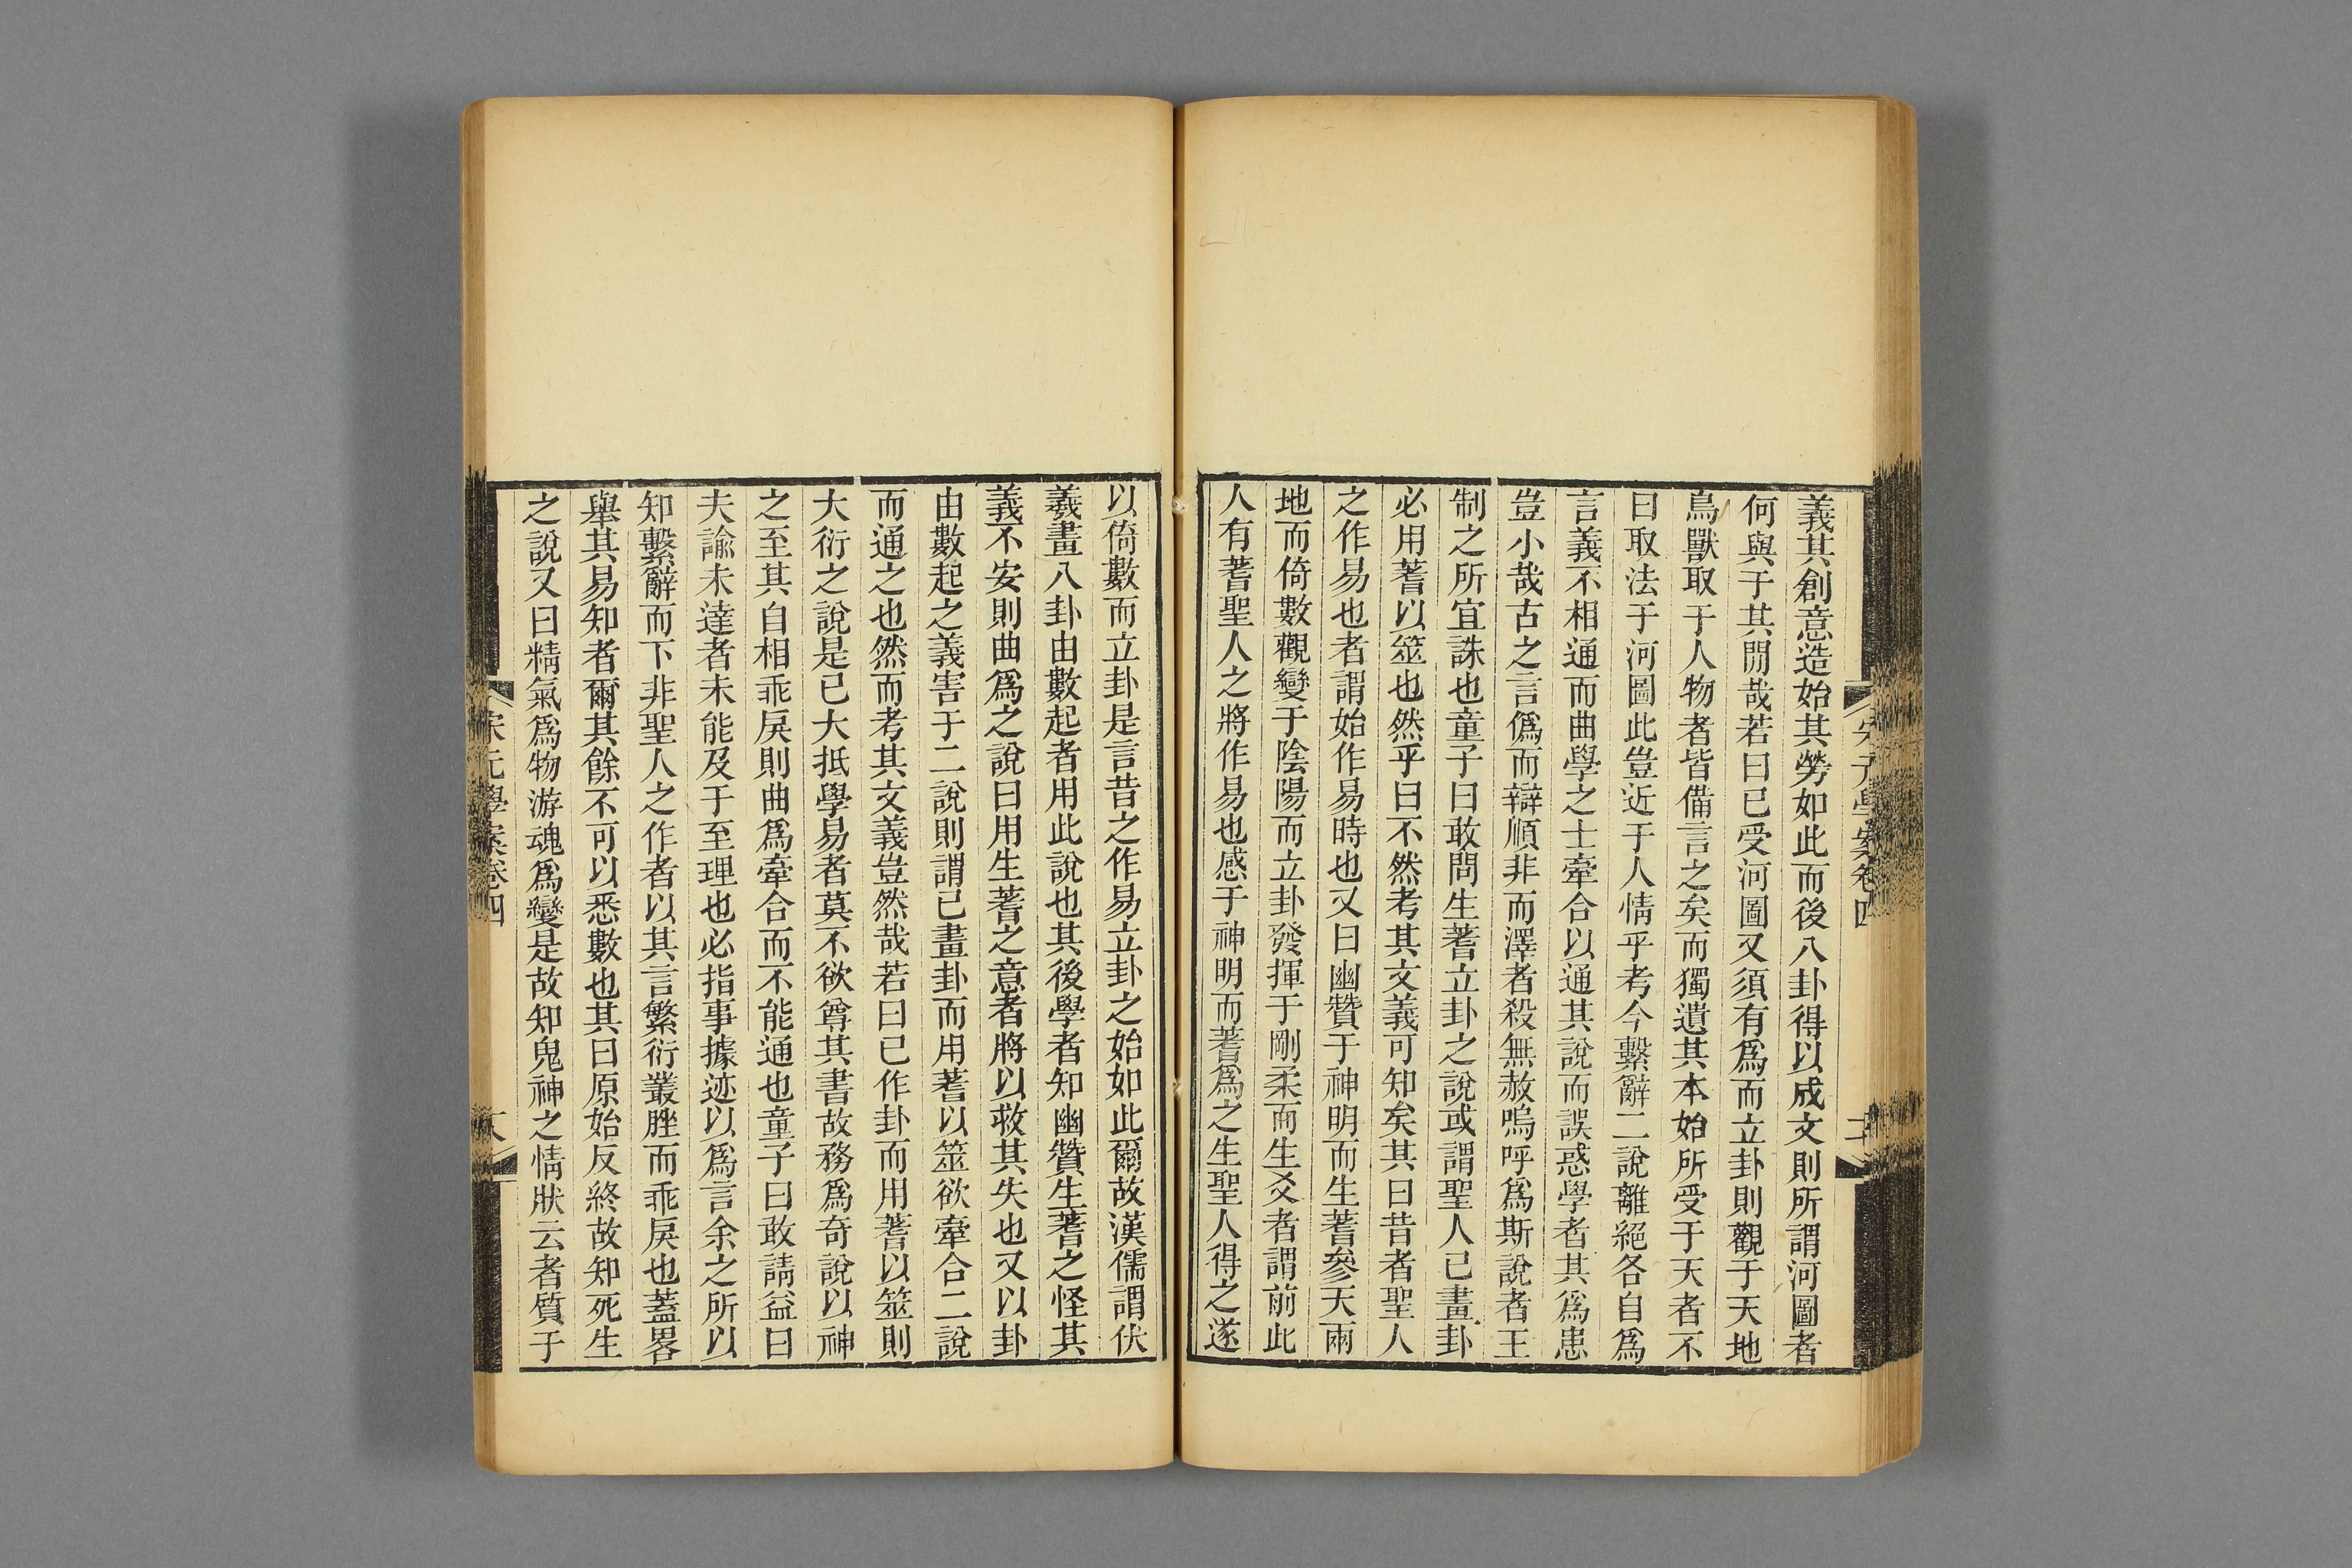 義其創意造始其勞如此而後八卦得以成文則所謂河圖者
何與于其閒哉若曰已受河圖又須有爲而立卦則觀于天地
鳥獸取于人物者皆備言之矣而獨遺其本始所受于天者不
曰取法于河圖此豈近于人情乎考今繫辭二說離絕各自爲
言義不相通而曲學之士牽合以通其說而誤惑學者其爲患
豈小哉古之言僞而辯順非而澤者殺無赦嗚呼爲斯說者王
制之所宜誅也童子曰敢問生蓍立卦之說或謂聖人已畫卦
必用蓍以筮也然乎曰不然考其文義可知矣其曰昔者聖人
之作易也者謂始作易時也又曰幽贊于神明而生蓍參天兩
地而倚數觀變于陰陽而立卦發揮于剛柔而生爻者謂前此
人有蓍聖人之將作易也感于神明而蓍爲之生聖人得之遂
以倚數而立卦是言昔之作易立卦之始如此爾故漢儒謂伏
羲畫八卦由數起者用此說也其後學者知幽贊生蓍之怪其
義不安則曲爲之說曰用生蓍之意者將以救其失也又以卦
由數起之義害于二說則謂已畫卦而用蓍以筮欲牽合二說
而通之也然而考其文義豈然哉若曰已作卦而用蓍以筮則
大衍之說是已大抵學易者莫不欲尊其書故務爲奇說以神
之至其自相乖戾則曲爲牽合而不能通也童子曰敢請益曰
夫諭未達者未能及于至理也必指事據迹以爲言余之所以
知繫辭而下非聖人之作者以其言繁衍叢脞而乖戾也蓋畧
舉其易知者爾其餘不可以悉數也其曰原始反終故知死生
之說又曰精氣爲物游魂爲變是故知鬼神之情狀云者質于
宋元學案卷四